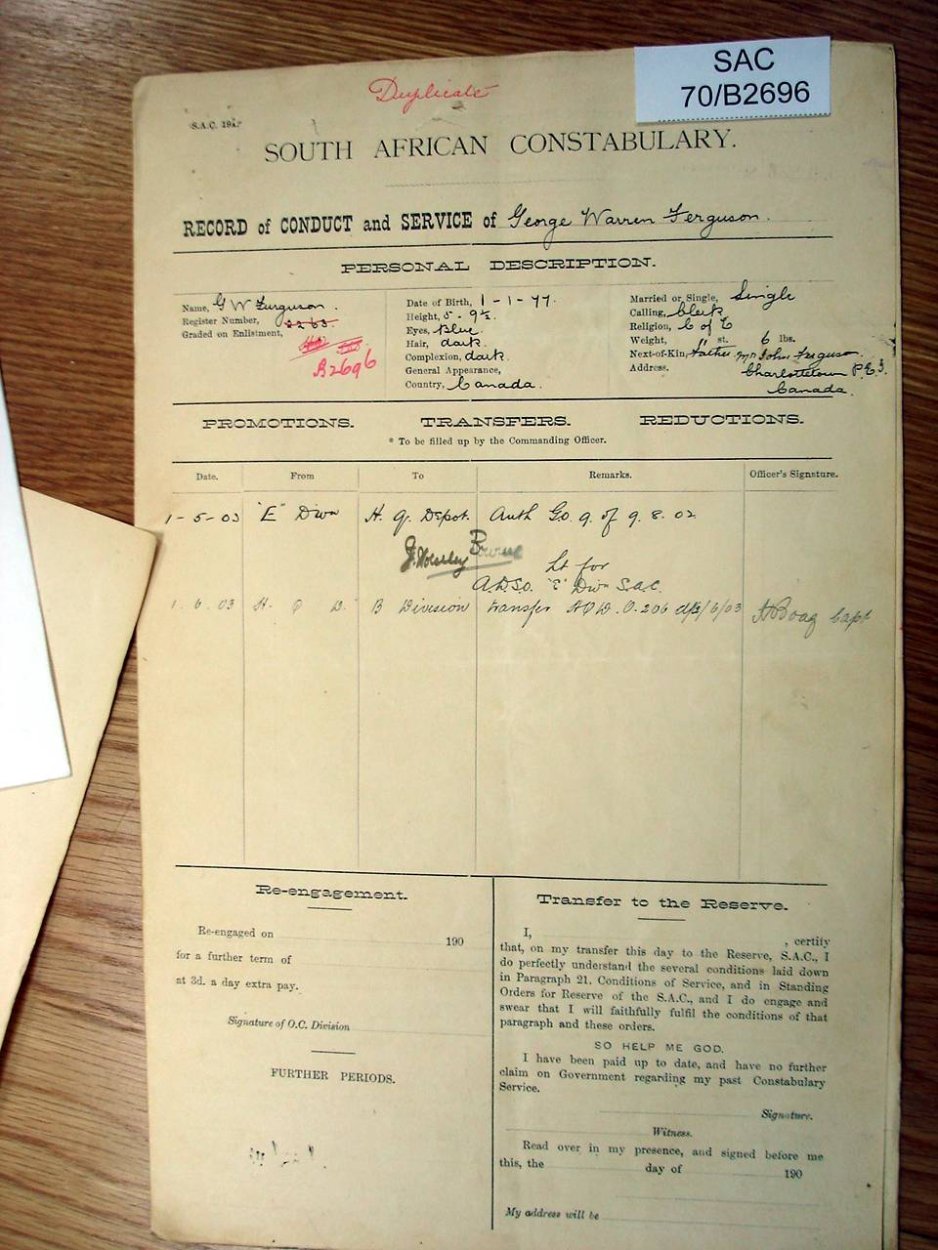 SAC
70/B2696
Duplicate
S.A.C.
SOUTH AFRICAN CONSTABULARY.
RECORD of CONDUCT and SERVICE of George Warren Ferguson.
PERSONAL DESCRIPTION.
Name, G W Ferguson.
Register Number, 2263.
Graded on Enlistment,
B2696
Date of Birth, 1-1-77.
Height, 5-9½
Eyes, Blue.
Hair, dark.
Complexion, dark.
General Appearance,
Country, Canada.
Married or Single, Single
Calling, Clerk
Religion, C of E
Weight, 11 st. 6 lbs.
Next-of-Kin, Father John Ferguson
Address. Charlottetown P.E.I.
Canada.
PROMOTIONS. TRANSFERS. REDUCTIONS.
* To be filled up by the Commanding Officer.
Date. From To Remarks. Officer's Signature.
1-5-03 "E" Divn H. Q. Depot. Auth G.O. 9. of 9. 8. 02
Lt for
A.D.S.O. "E" Div S.A.C.
1. 6. 03 H. Q D. B Division transfer 206 Boag Capt
Re-engagement.
Re-engaged on 190
for a further term of
at 3d. a day extra pay.
Signature of O.C. Division
FURTHER PERIODS.
Transfer to the Reserve.
I, , certify
that, on my transfer this day to the Reserve, S.A.C., I
do perfectly understand the several conditions laid down
in Paragraph 21, Conditions of Service, and in Standing
Orders for Reserve of the S.A.C., and I do engage and
swear that I will faithfully fulfil the conditions of that
paragraph and these orders.
SO HELP ME GOD.
I have been paid up to date, and have no further
claim on Government regarding my past Constabulary
Service.
Signature.
Witness.
Read over in my presence, and signed before me
this, the day of 190
My address will be